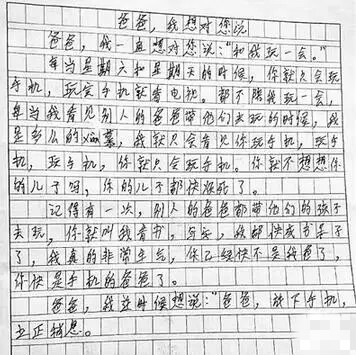 爸爸,我想对您说
爸爸,我一直想对您说:“和我玩一会。”
每当星期六和星期天的时候,你就只会玩
手机,玩完手机就看电视。都不陪我玩一会,
每当我看见别人的爸爸带他们去玩的时候,我
是多么的xian慕,我就只会看见你玩手机,玩手
机,玩手机,你就只会玩手机。你就不想想你
的儿子吗,你的儿子都快疯死了。
记得有一次,别人的爸爸都带他们的孩子
去玩,你就叫我看书,写字,我都快成书呆子
了,我真的非常生气,你已经快不是我爸了,
你快是手机的爸爸了。
爸爸,我这时候想说:“爸爸,放下手机,
立正稍息。